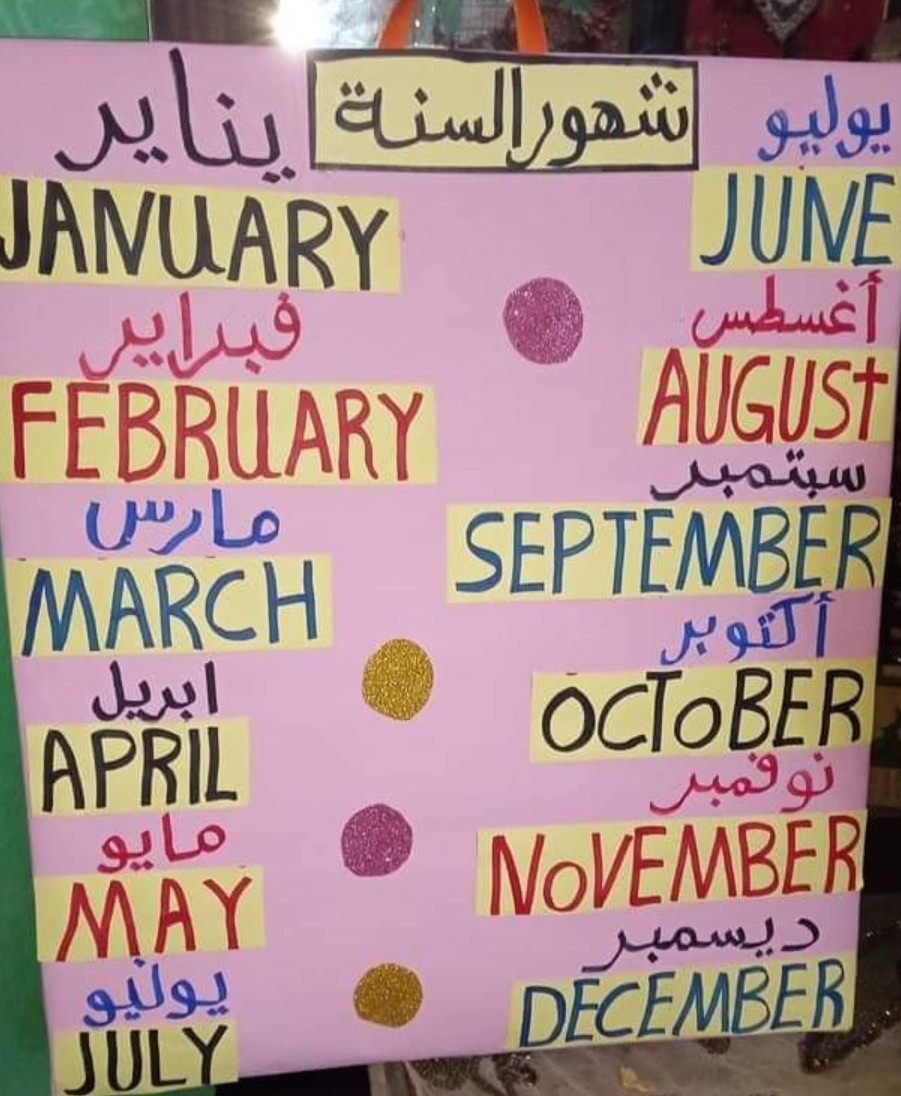 شهور السنة
يناير
JANUARY
فبراير
FEBRUARY
مارس
MARCH
ابريل
APRIL
مايو
MAY
يونيو
JULY
يوليو
JUNE
أغسطس
AUGUST
سبتمبر
SEPTEMBER
أكتوبر
OCTOBER
نوفمبر
NOVEMBER
ديسمبر
DECEMBER